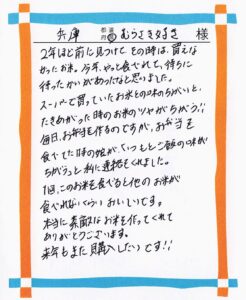 兵庫 都道府県 むらさき好き 様
2年ほど前に見つけて その時は、買えな
かったお米。今年、やっと食べれて、待ちに
待ったかいがあったなと思いました。
スーパーで買っていたお米との味のちがいと、
たきあがった時のお米のツヤがちがう!!
毎日、お弁当を作るのですが、お弁当を
食べてた18の娘が、いつもとご飯の味が
ちがうっと 私に連絡をくれました。
1回、このお米を食べると他のお米が
食べれないくらい おいしいです。
本当に素敵なお米を作ってくれて
ありがとうございます。
来年もまた購入したいです!!